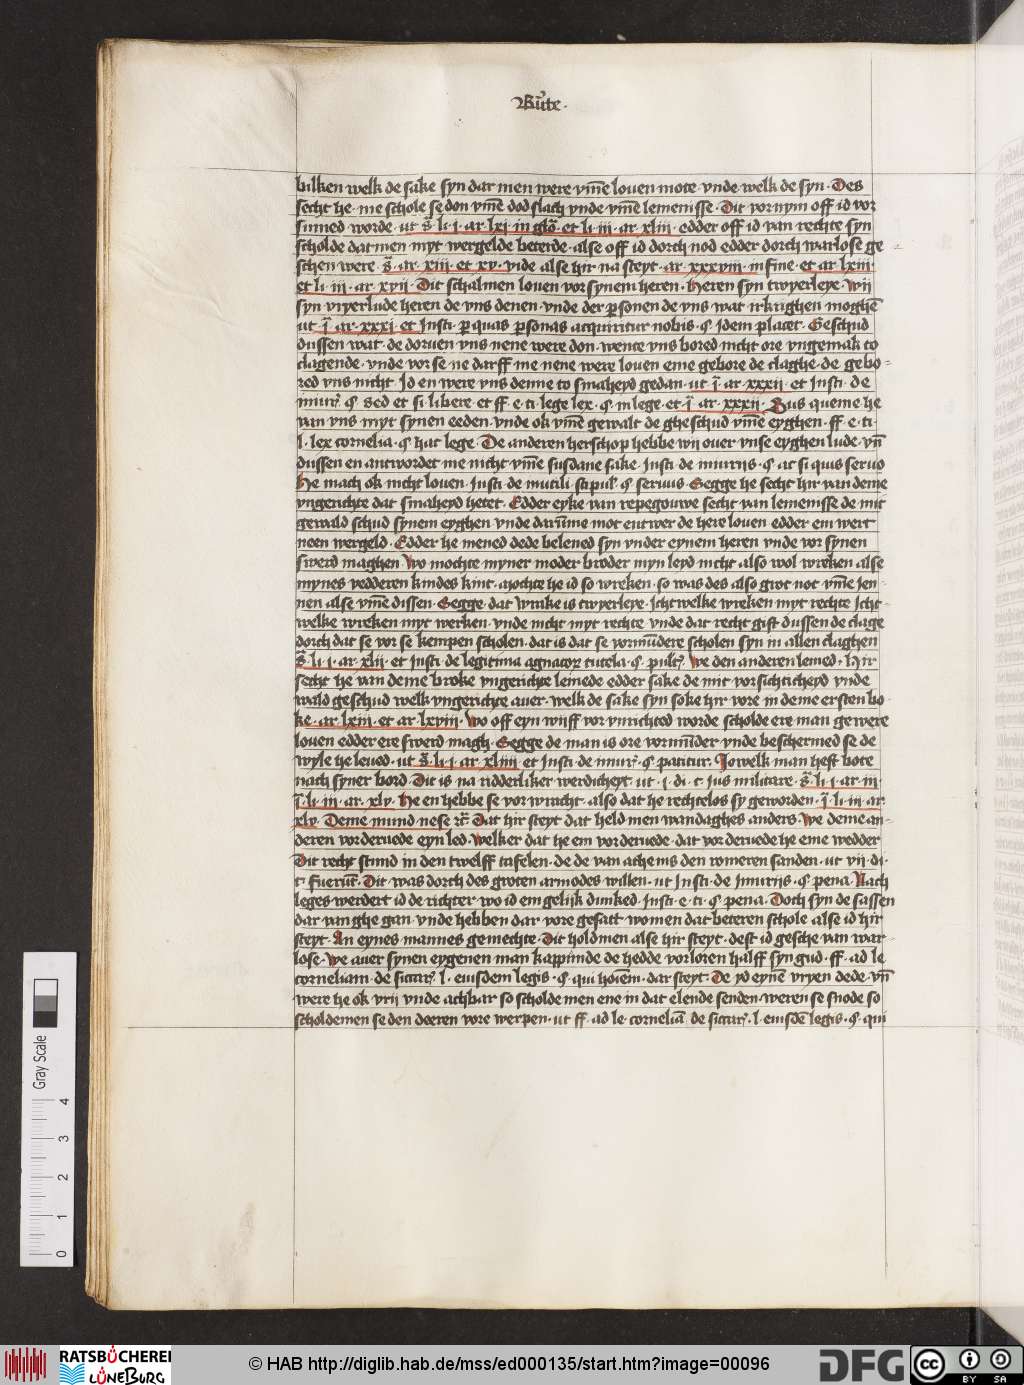 Bůte·
bilken welk de sake syn dar men were vm̄e louen mote· vnde welk de syn· Des
secht he· me schole se don vm̄e dod slach vnde vm̄e lemenisse· Dit vornym off id vor
sumed worde· ut s̄· li· j· ar lxj in glo· et li· iii· ar· xliii· edder off id van rechte syn
scholde dat men myt wergelde beterde· alse off id dorch nod edder dorch warlose ge
schen were s̄· ar· xiii· et xv· vide alse hir na steyt· ar· xxxviii· in fine· et ar lxiii·
et li· iii· ar· xvii· Dit schalmen louen vor synem heren· Heren syn twyerleye· Wii
syn vryerlude heren de vns denen· vnde der psonen de vns wat irkrighen moghē
ut· j̄· ar· xxxj· et Insti· p quas psonas acquiritur nobis· § Idem placet· Geschud
dussen wat· de doruen vns nene were don· wente vns bored nicht ore vngemak to
clagende· vnde vor se ne darff me nene were louen eme gebore de claghe· de gebo-
red vns nicht· Id en were vns denne to smaheyd gedan· ut j̄· ar· xxxii· et Insti· de
iniur· § Sed et si libere· et ff· e· ti· lege lex· § in lege· et j̄· ar· xxxii· Sus queme he
van vns myt synen eeden· vnde ok vm̄e gewalt de gheschud vm̄e eyghen· ff· e· ti·
l· lex cornelia· § hac lege· De anderen herschop hebbe wii ouer vnse eyghen lude· vn̄
dussen en antwordet me nicht vm̄e susdane sake· Insti· de iniuriis· § at si quis seruo
He mach ok nicht louen· Insti· de inutili· stipul· § seruus· Segge he secht hir van deme
vngerichte dat smaheyd hetet· Edder eyke van repegouwe secht van lemenisse de mit
gewald schud synem eyghen· vnde darum̄e mot entwer de here louen· edder em wert
neen wergeld· Edder he mened dede belened syn vnder eynem heren vnde vor synen
swerd maghen· Wo mochte myner moder broder myn leyd nicht also wol wreken alse
mynes vedderen kindes kint· Mochte he id so wreken· so was des also grot not vm̄e jen-
nen alse vm̄e dissen· Segge· dat wrake is twyerleye· Icht welke wreken myt rechte Icht-
welke wreken myt werken· vnde nicht myt rechte· vnde dat recht gift dussen de clage
dorch dat se vor se kempen scholen· dat is dat se vormūdere scholen syn in allen claghen
s̄· li· j· ar· xlii· et Insti· de legitima agnator tutela· § pult· We den anderen lemed· Hir
secht he van deme broke vngerichte lemede edder sake de mit vorsichticheyd vnde
wald geschud welk vngerichte auer· welk de sake syn soke hir vore in deme ersten bo-
ke· ar· lxiii· et ar· lxviii· Wo off eyn wiiff vor vnrichted worde scholde ere man gewere
louen edder ere swerd magh· Segge de man is ore vormūder vnde beschermed se de
wyle he leued· ut· s̄· li· j· ar· xliiii· et Insti· de iniur· § patitur· Jowelk man heft bote
nach syner bord· Dit is na ridderliker werdicheyt· ut· j· di· c· jus militare· s̄· li· j· ar· iii·
j̄· li· iii· ar· xlv· He en hebbe se vorwracht· also dat he rechtelos sy geworden· j̄· li· iii· ar
xlv· Deme mund nese ꝛc· Dat hir steyt dat held men wandaghes anders· We deme an-
deren vorderuede eyn led· Welker dat he em vorderuede· dat vorderuede he eme wedder
Dit recht stund in den twelff tafelen· de de van athenis den romeren sanden· ut vii· di·
c· fuerūt· Dit was dorch des groten armodes willen· ut Insti· de iniuriis· § pena· Nach
leges werdert id de richter wo id em gelijk dunked· Insti· e· ti· § pena· Doch syn de sassen
dar van ghe gan· vnde hebben dar vore gesatt wo men dat beteren schole alse id hir
steyt· An eynes mannes gemechte· Dit hold men alse hir steyt· dest id gesche van war-
lose· We auer synen eygenen man kappunde de hedde vorloren halff syn gud· ff· ad le
corneliam· de siccar· l· eiusdem legis· § qui hoīem· dar steyt· De yd eynē vryen dede· vn̄
were he ok vrii vnde achbar so scholde men ene in dat elende senden· weren se snode so
scholdemen se den deeren vore werpen· ut ff· ad le· corneliā de siccar· l· eiusdē legis· § qui
Gray Scale
0 1 2 3 4
RATSBÜCHEREI
LÜNEBURG
© HAB http://diglib.hab.de/mss/ed000135/start.htm?image=00096
DFG
cc
BY SA